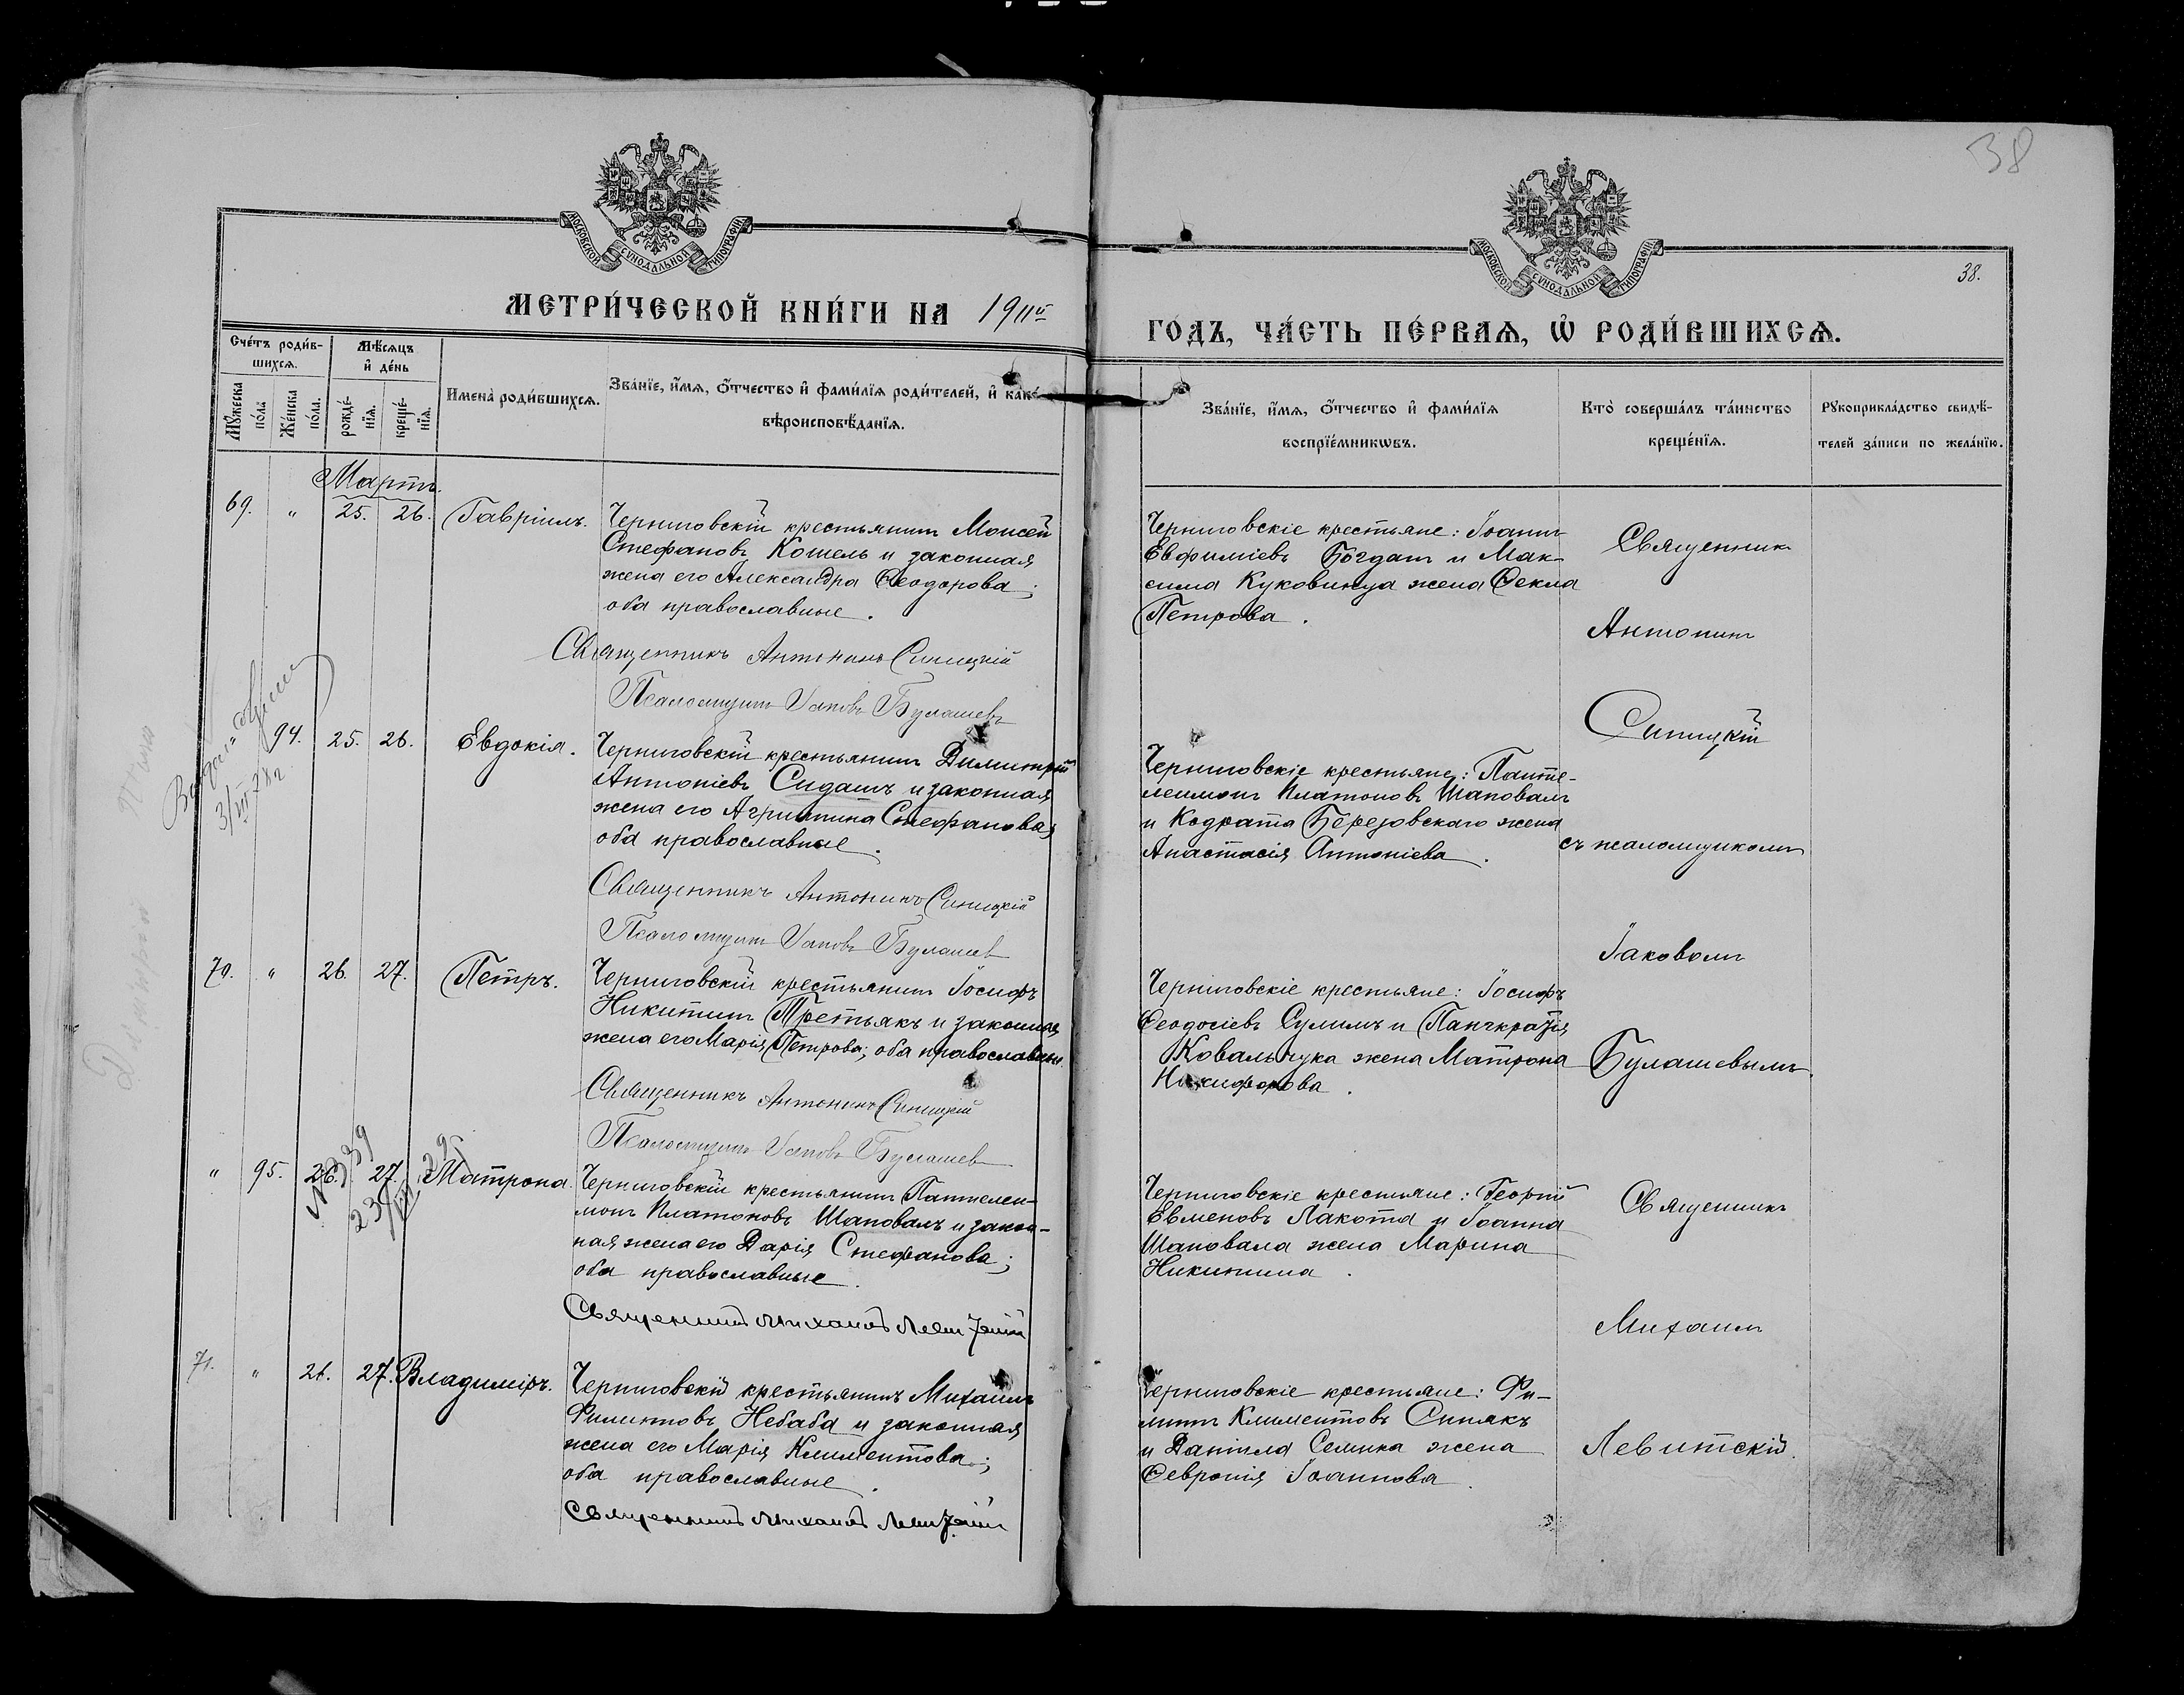 38
МОСКОВСКОЙ СѴНОДАЛЬНОЙ ТИПОГРАФІИ
МОСКОВСКОЙ СѴНОДАЛЬНОЙ ТИПОГРАФІИ
38.
МЕТРИ́ЧЕСКОЙ КНИ́ГИ НА 1911й
ГОДЪ, ЧА́СТЬ ПЕ́РВАѦ, Ѡ҆ РОДИ́ВШИХСѦ.
Сче́тъ роди́в-
шихсѧ.
Мѣ́сѧцъ
и҆ де́нь
Мꙋ́жеска
по́ла
Же́нска
по́ла.
рожде́-
нїѧ.
креще́-
нїѧ.
Имена̀ роди́вшихсѧ.
Зва́нїе, и҆́мѧ, ѻ҆́тчество и҆ фами́лїѧ роди́телей, и҆ како́
вѣроисповѣ́данїѧ.
Зва́нїе, и҆́мѧ, ѻ҆́тчество и҆ фами́лїѧ
воспрїе́мникѡвъ.
Кто̀ соверша́лъ та́инство
креще́нїѧ.
Рꙋкоприкла́дство свидѣ́-
телей за́писи по жела́нїю.
Мартъ.
69. " 25. 26. Гавріилъ.
Черниговскій крестьянинъ Моисей
Стефановъ Кошель и законная
жена его Александра Ѳеодорова;
оба православные.
Священникъ Антонинъ Синицкій
Псаломщикъ Іаковъ Булашевъ
Черниговскіе крестьяне: Іоаннъ
Евфиміевъ Богдан и Мак-
сима Куковинца жена Ѳекла
Петрова.
Священникъ
Антонинъ
Синицкій
съ псаломщикомъ
Іаковомъ
Булашевымъ.
94. 25. 26. Евдокія.
Черниговскій крестьянинъ Димитрій
Антоніевъ Сидашъ и законная
жена его Агриппина Стефанова;
оба православные.
Священникъ Антонинъ Синицкій
Псаломщикъ Іаковъ Булашев
Черниговскіе крестьяне: Панте-
леимонъ Платоновъ Шаповалъ
и Кодрата Березовскаго жена
Анастасія Антоніева.
3/VII 28 г.
70. " 26. 27. Петръ.
Черниговскій крестьянинъ Іосифъ
Никитинъ Третьякъ и законная
жена его Марія Петрова; оба православные.
Священникъ Антонинъ Синицкій
Псаломщикъ Іаковъ Булашев
Черниговскіе крестьяне: Іосифъ
Ѳеодосіевъ Сулимъ и Панкратія
Ковальчука жена Матрона
Никифорова.
" 95. 26. 27. Матрона.
Черниговскій крестьянинъ Пантелеи-
монъ Платоновъ Шаповалъ и закон-
ная жена его Дарія Стефанова;
оба православные.
Священникъ Михаилъ Левитскій
Черниговскіе крестьяне: Георгій
Евменовъ Лакота и Іоанна
Шаповала жена Марина
Никитина.
Священникъ
Михаилъ
Левитскій.
71. " 26. 27. Владиміръ.
Черниговскій крестьянинъ Михаилъ
Филиповъ Небаба и законная
жена его Марія Климентова;
оба православные.
Священникъ Михаилъ Левитскій
Черниговскіе крестьяне: Фи-
липп Климентовъ Синякъ
и Даніила Семика жена
Ѳевронія Іоаннова.